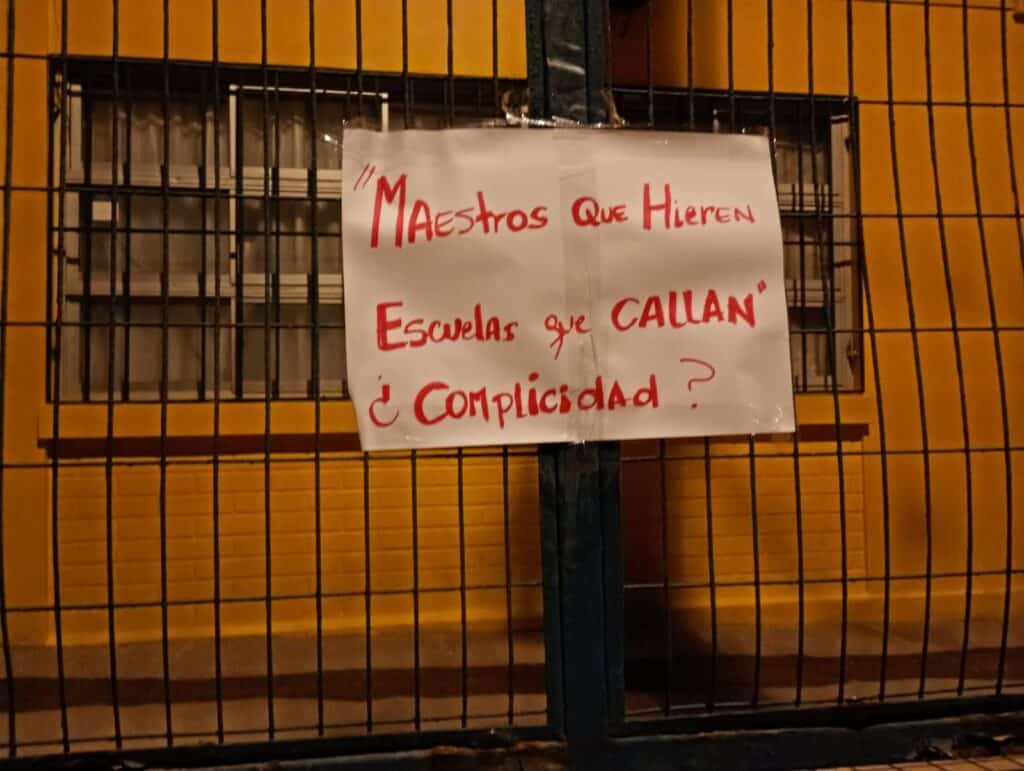 "Maestros que Hieren
Escuelas que CALLAN"
¿Complicidad?